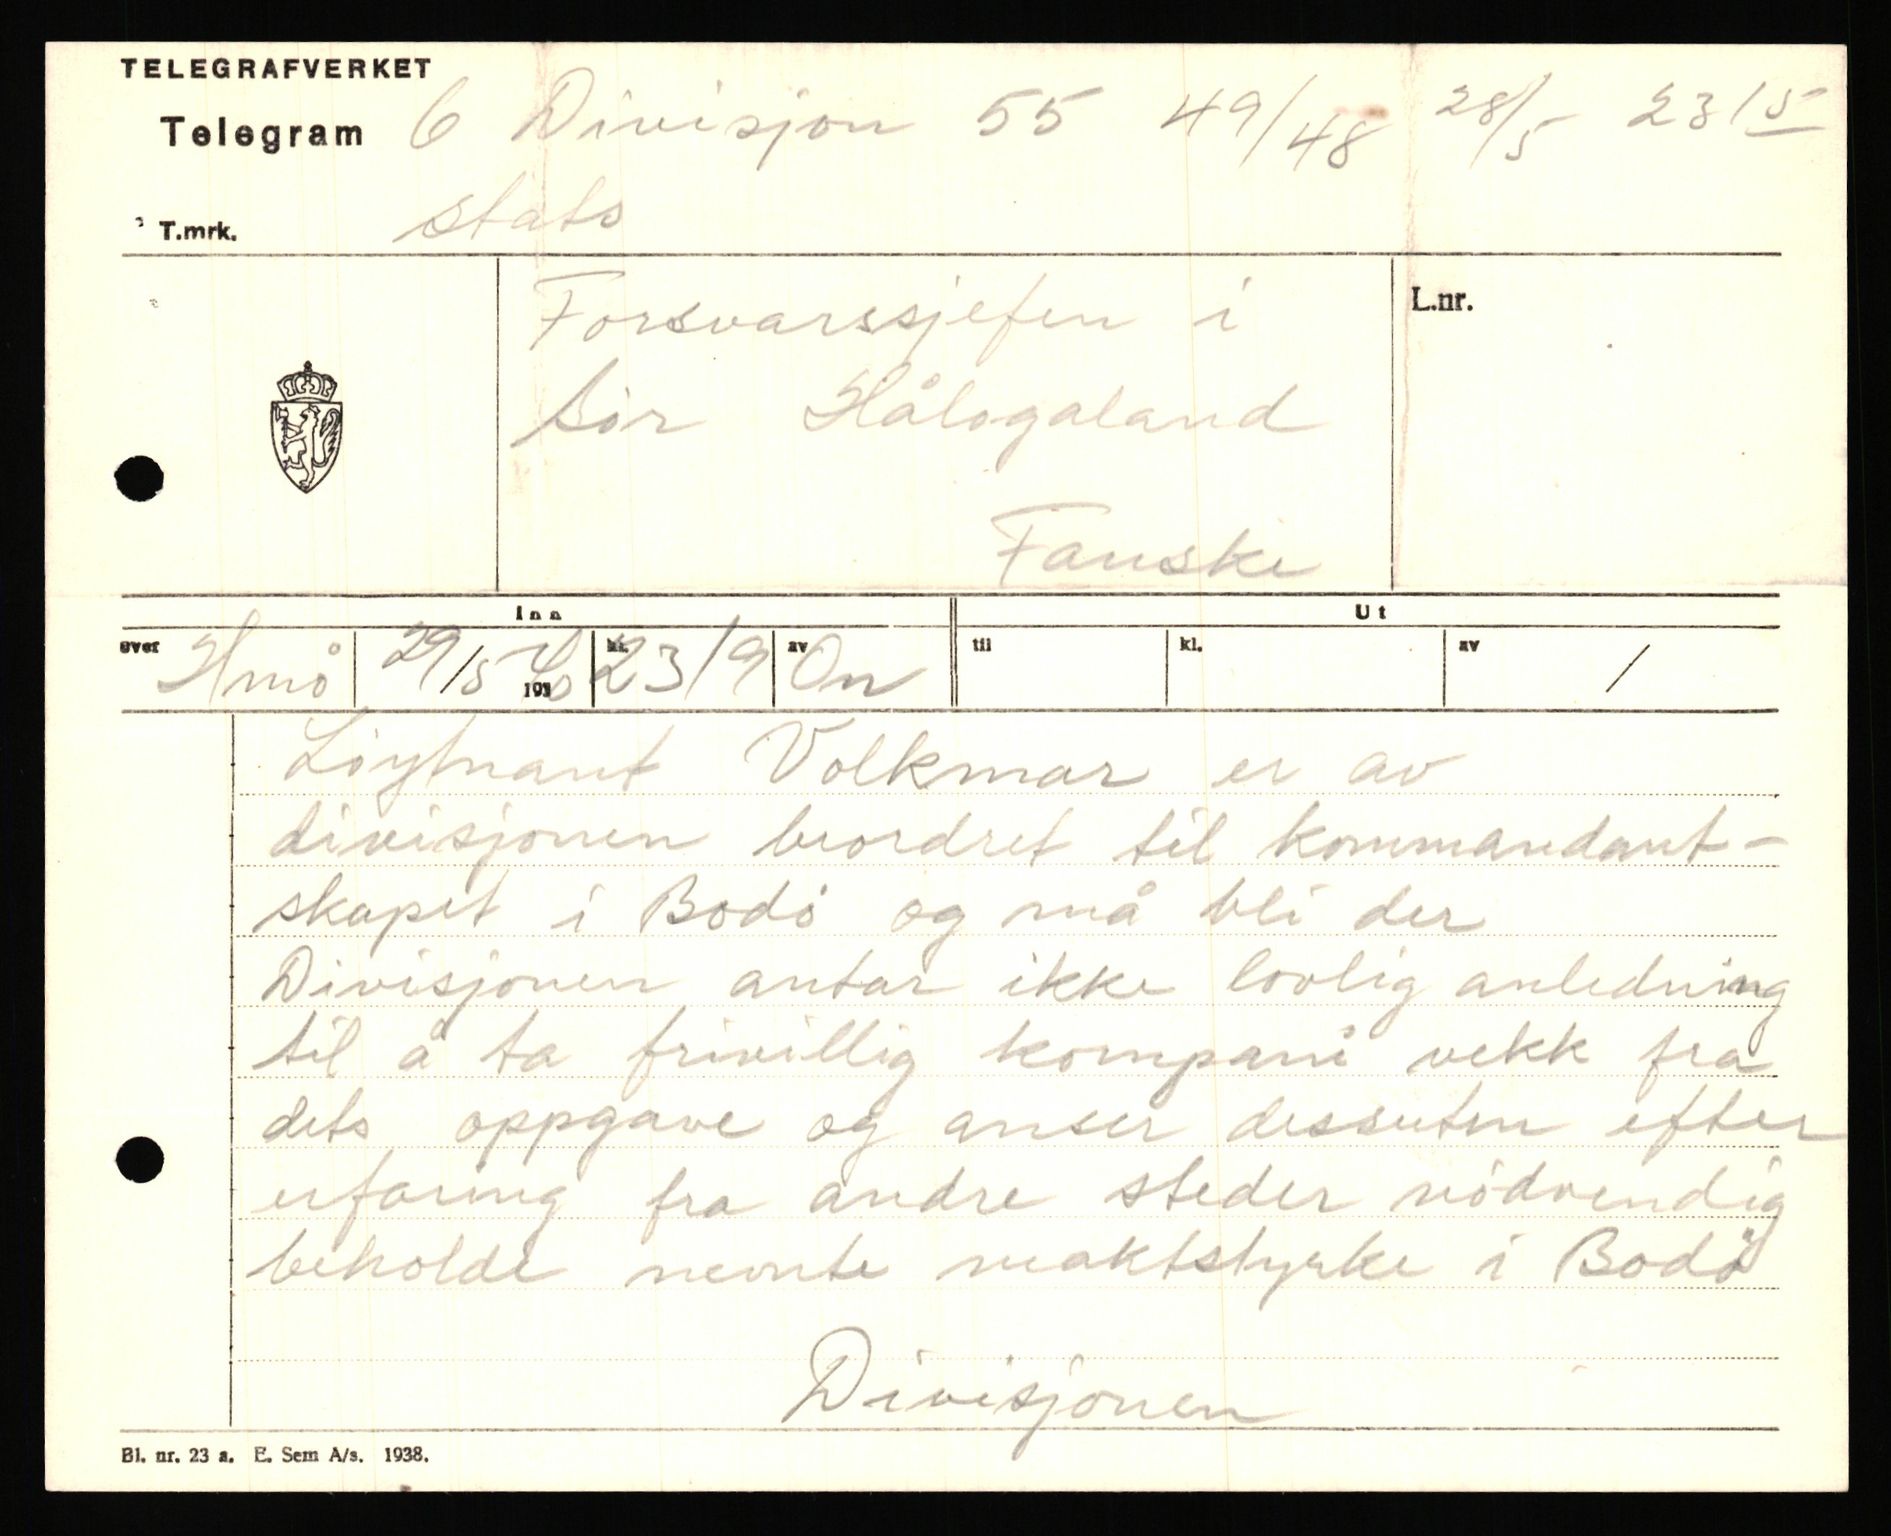 TELEGRAFVERKET
Telegram 6 Divisjon 55 49/48 28/5 2315
T.mrk. stats
Forsvarssjefen i
Sör Hålogaland
Fauske
L.nr.
Inn Ut
over Hmö 29/5 1940 kl. 23/9 av On til kl. av /
Löytnant Volkmar er av
divisjonen beordret til kommandant-
skapet i Bodö og må bli der
Divisjonen antar ikke lovlig anledning
til å ta frivillig kompani vekk fra
dets oppgave og anser dessuten efter
erfaring fra andre steder nödvendig
beholde nevnte vaktstyrke i Bodö
Divisjonen
Bl. nr. 23 a. E. Sem A/s. 1938.